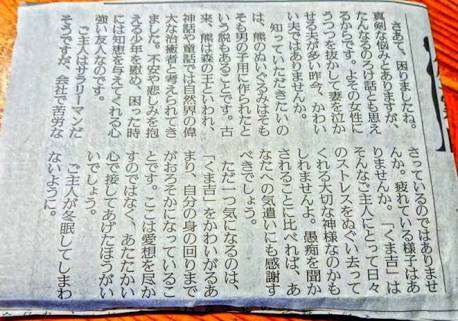 さあて、困りましたね。
真剣な悩みとありますが、
たんなるのろけ話とも思え
るからです。よその女性に
うつつを抜かして妻を泣か
せる夫が多い昨今、かわい
い夫ではありませんか。
知っていただきたいの
は、熊のぬいぐるみはそも
そも男の子用に作られたと
いう説もあることです。古
来、熊は森の王といわれ、
神話や童話では自然界の偉
大な治癒者と考えられてき
ました。不安や悲しみを抱
える少年を慰め、困った時
には知恵を与えてくれる心
強い友人なのです。
ご主人はサラリーマンだ
そうですが、会社で苦労な
さっているのではありませ
んか。疲れている様子はあ
りませんか。「くま吉」は
そんなご主人にとって日々
のストレスをぬぐい去って
くれる大切な神様なのかも
しれませんよ。愚痴を聞か
されることに比べれば、あ
なたへの気遣いにも感謝す
べきでしょう。
ただ一つ気になるのは、
「くま吉」をかわいがるあ
まり、自分の身の回りまで
がおろそかになっているこ
とです。ここは愛想を尽か
すのではなく、あたたかい
心で接してあげたほうがい
いでしょう。
ご主人が冬眠してしまわ
ないように。